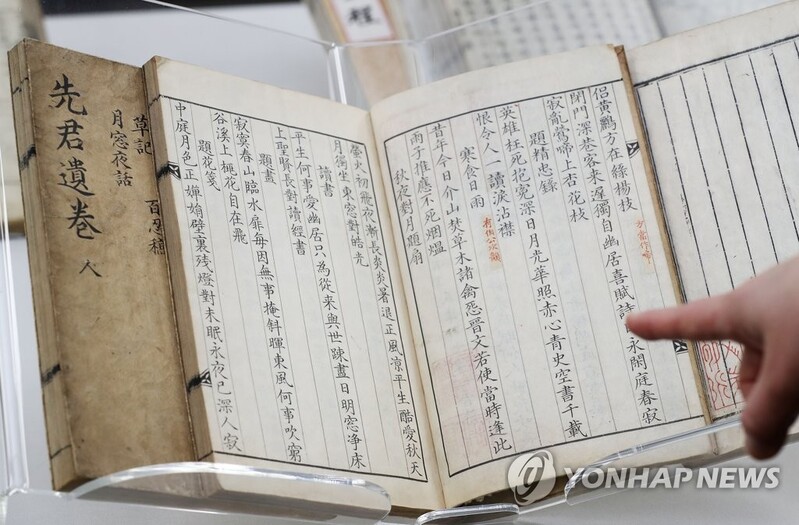 侶黃鸝方在綠楊枝
閉門深巷客來遲獨自幽居喜賦詩永閑庭春寂
寂亂鶯啼上杏花枝
題精忠錄
英雄枉死抱寃深日月光華照赤心靑史空書千載
恨令人一讀淚沾襟
寒食日雨
昔年今日介山焚草木諸禽怨晉文若使當時逢此
雨子推應不死烟熅
秋夜對月題扇
螢火初飛夜漸長炎炎暑退正風凉平生酷愛秋天
月獨坐東窓對皓光
讀書
平生何事愛幽居只為從來與世踈晝日明窓淨床
上聖賢長對讀經書
題畫
寂寞春山臨水扉每因無事掩斜暉東風何事吹窮
谷溪上桃花自在飛
題花箋
中庭月色正嬋娟壁裏残燈對未眠永夜已深人寂
草記
月窓夜話
百忍稿
先君遺卷
人
程
YONHAP NEWS